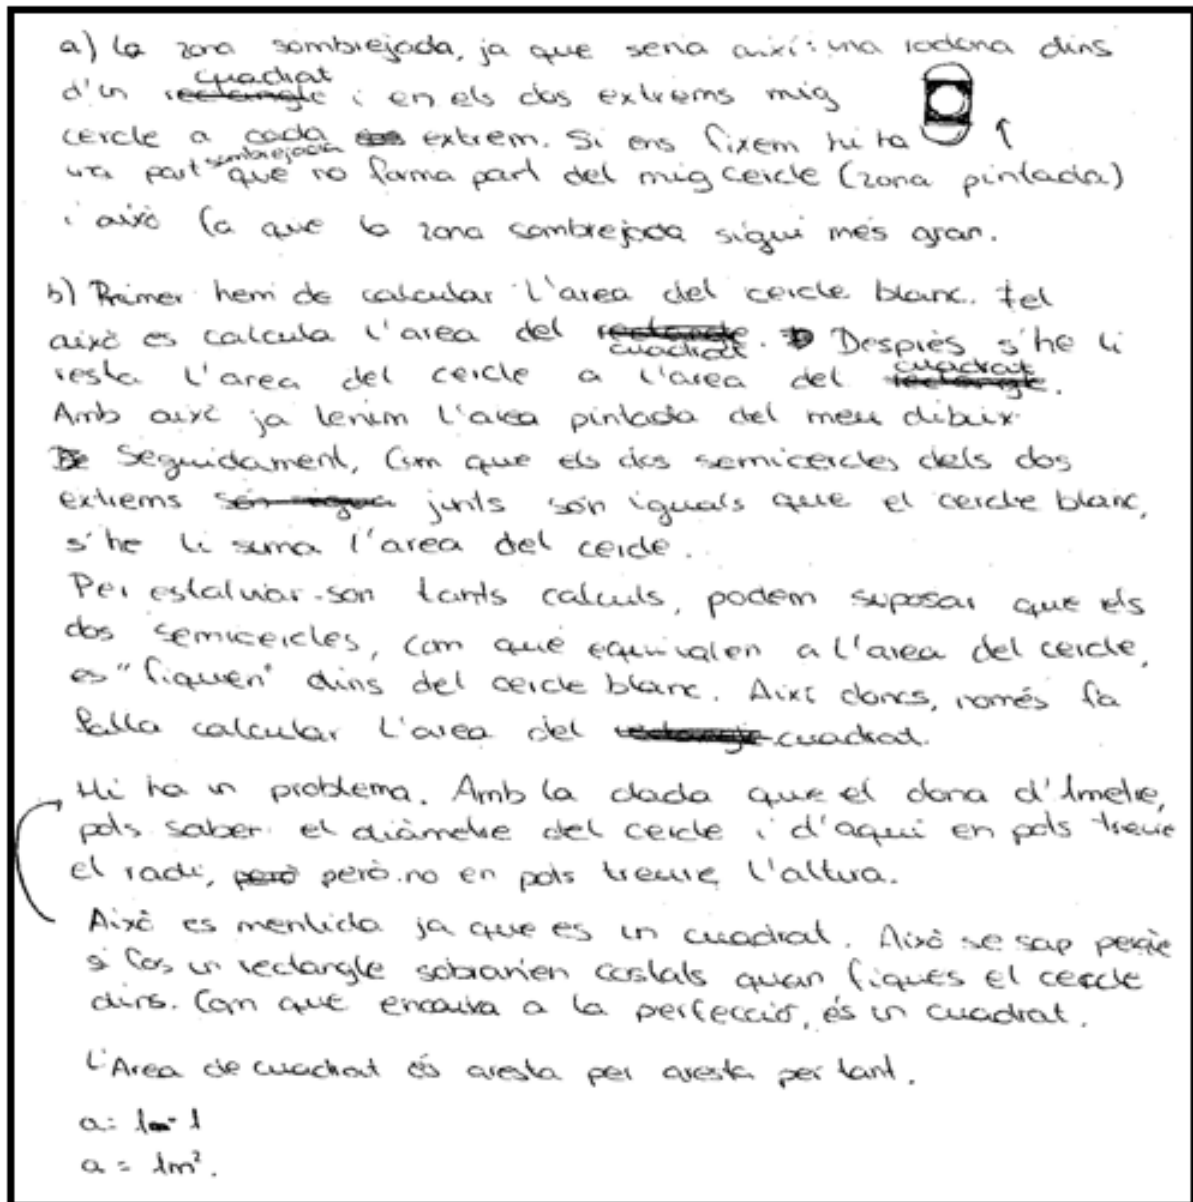 a) la zona sombrejada, ja que seria així: una rodona dins
d'un rectangle quadrat i en els dos extrems mig
cercle a cada extrem. Si ens fixem hi ha
una part sombrejada que no forma part del mig cercle (zona pintada)
i això fa que la zona sombrejada sigui més gran.
b) Primer hem de calcular l'area del cercle blanc. Fet
això es calcula l'area del rectangle cuadrat. Després s'he li
resta l'area del cercle a l'area del rectangle cuadrat.
Amb això ja tenim l'area pintada del meu dibuix.
Seguidament, com que els dos semicercles dels dos
extrems junts són iguals que el cercle blanc,
s'he li suma l'area del cercle.
Per estalviar-son tants calculs, podem suposar que els
dos semicercles, com que equivalen a l'area del cercle,
es "fiquen" dins del cercle blanc. Així doncs, només fa
falta calcular l'area del rectangle cuadrat.
Hi ha un problema. Amb la dada que et dona d'1metre,
pots saber el diàmetre del cercle i d'aquí en pots treure
el radi, però però no en pots treure l'altura.
Això es mentida ja que es un cuadrat. Això se sap perquè
si fos un rectangle sobrarien costats quan fiques el cercle
dins. Com que encaixa a la perfecció, és un cuadrat.
L'Area de cuadrat és aresta per aresta per tant.
a = 1 · 1
a = 1m².